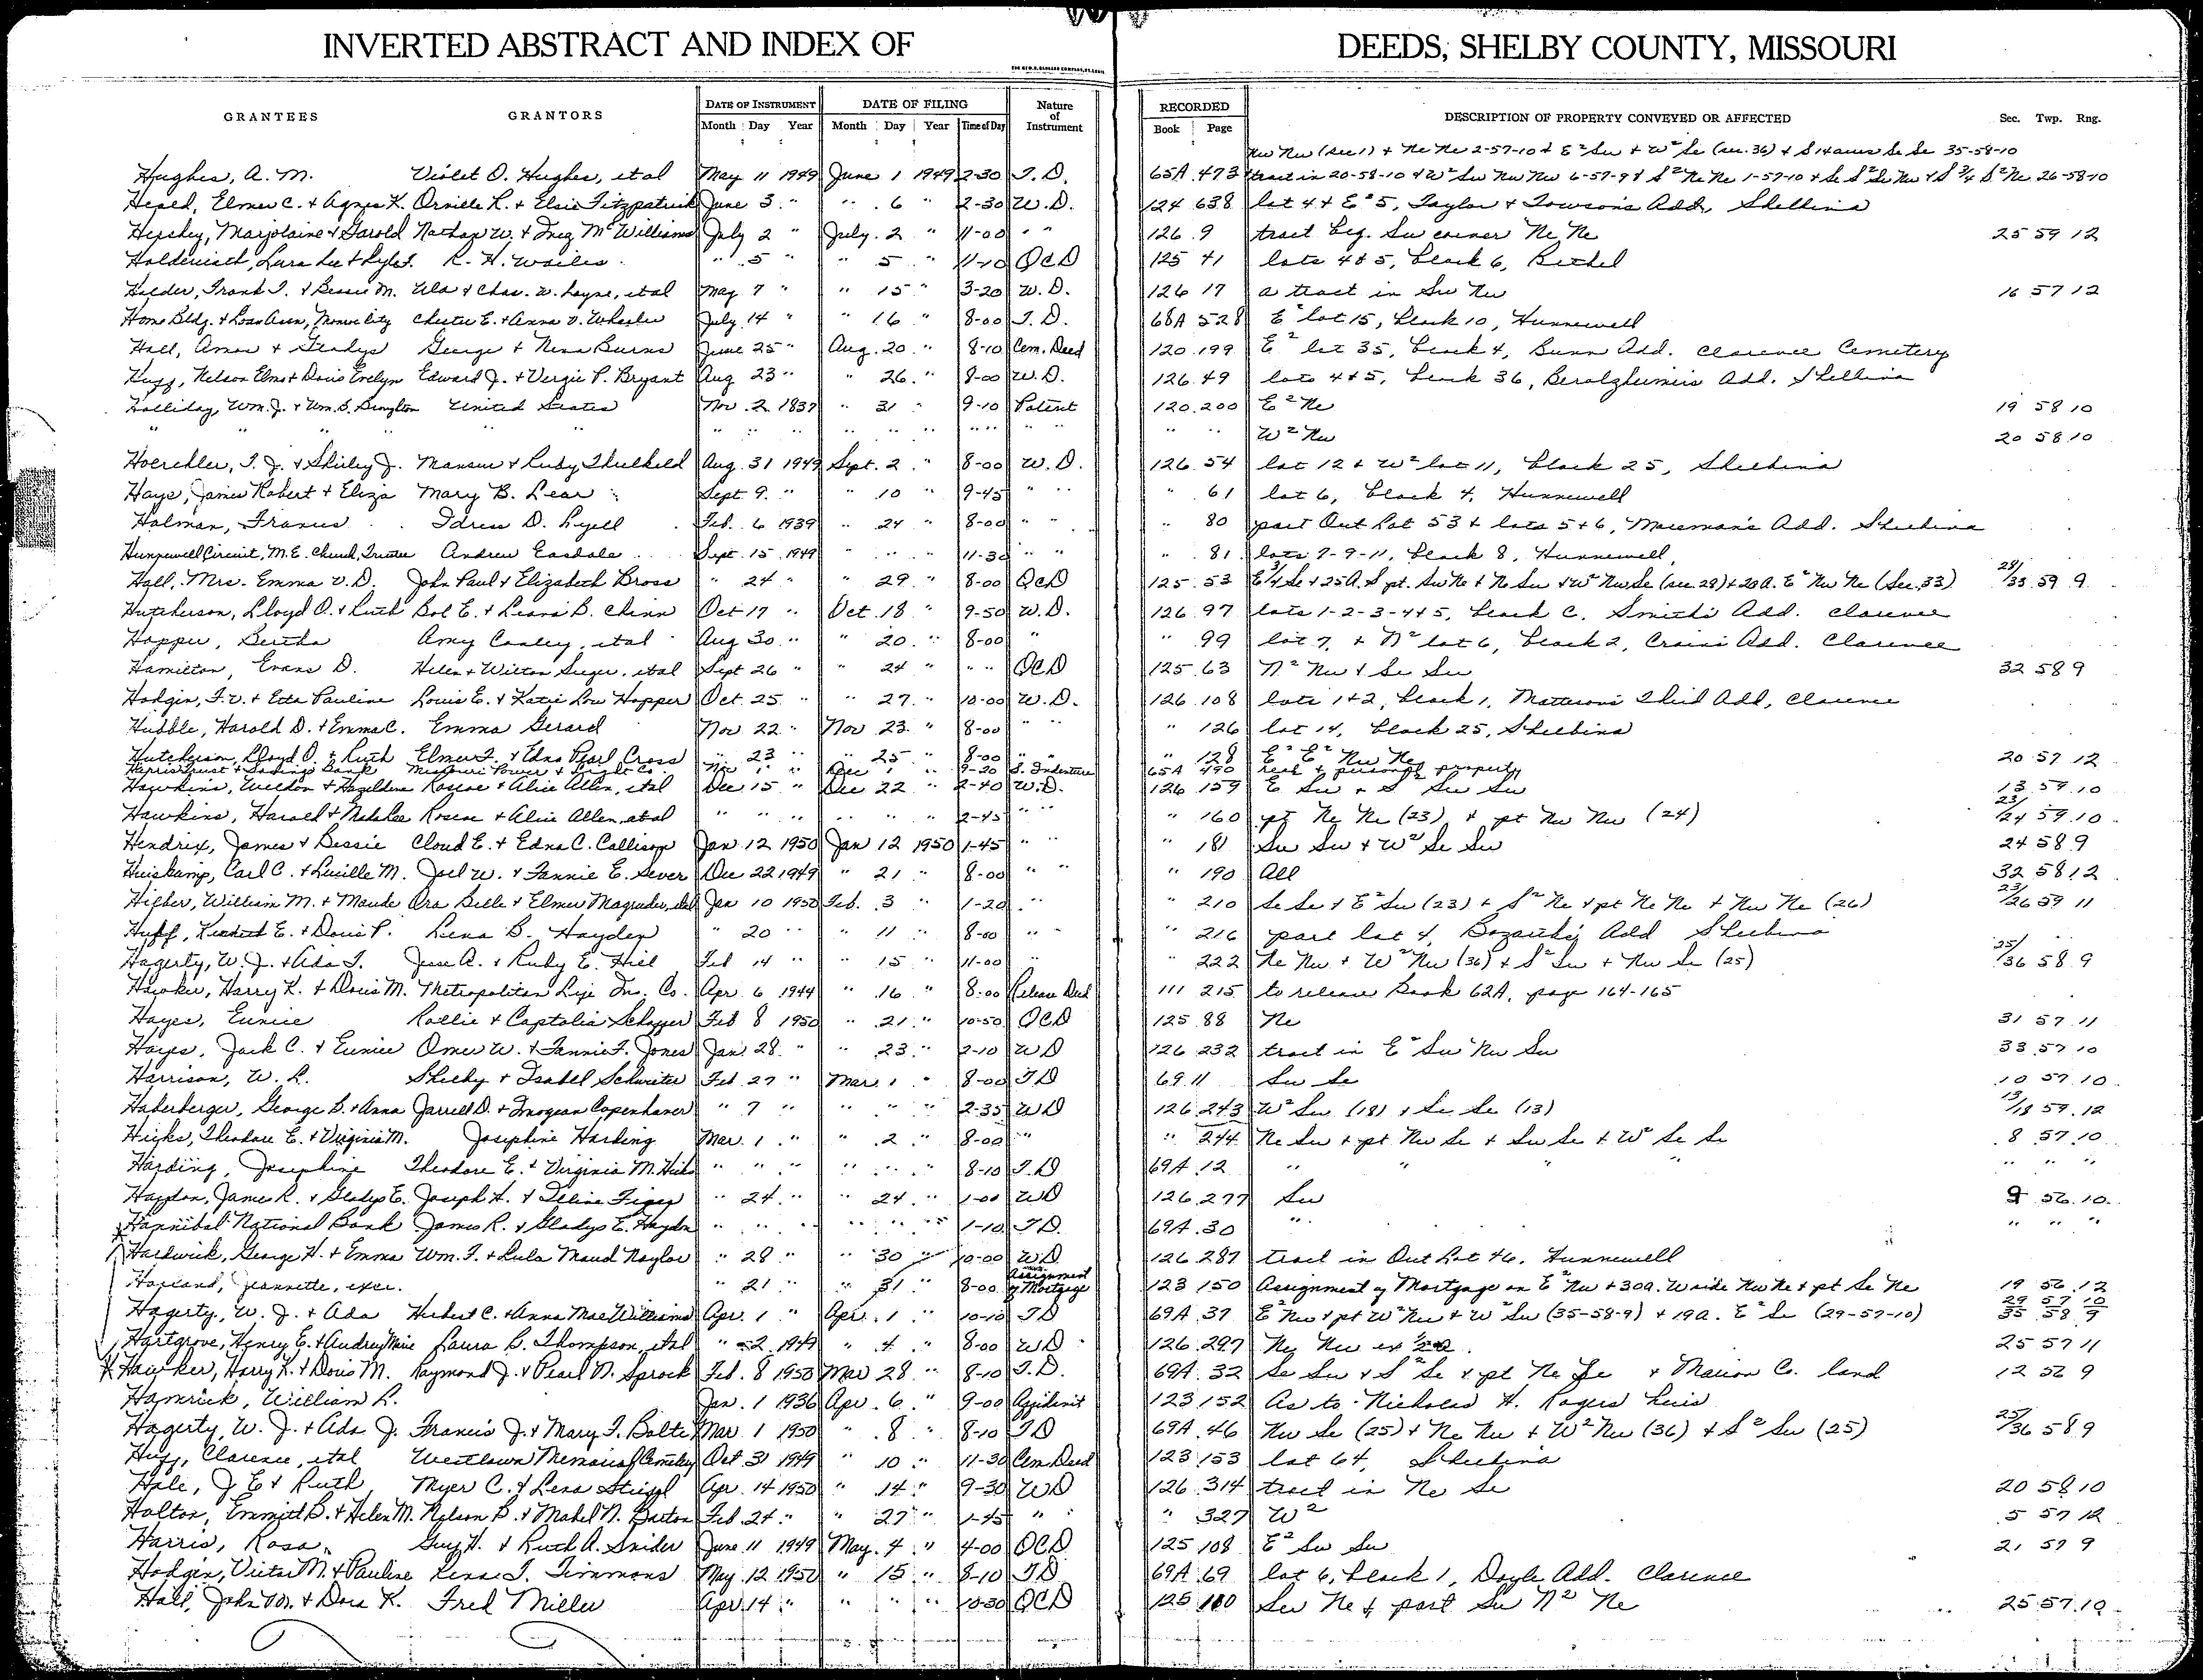 INVERTED ABSTRACT AND INDEX OF DEEDS, SHELBY COUNTY, MISSOURI
GRANTEES GRANTORS DATE OF INSTRUMENT DATE OF FILING Nature of Instrument RECORDED DESCRIPTION OF PROPERTY CONVEYED OR AFFECTED Sec. Twp. Rng.
Month Day Year Month Day Year Time of Day Book Page
Nw Nw (Sec 1) + Ne Ne 2-57-10 + E² Sw + W² Se (sec. 36) + S 14 acres Se Se 35-58-10
Hughes, A. M. Violet O. Hughes, et al May 11 1949 June 1 1949 2-30 T. D. 65A 473 tract in 20-58-10 + W² Sw Nw Nw 6-57-9 + S² Ne Ne 1-57-10 + Se S² Se Nw + S 3/4 S² Ne 26-58-10
Elmer C. + Agnes K. Orville R. + Elsie Fitzpatrick June 3 " " 6 " 2-30 W. D. 124 638 lot 4 + E² 5, Taylor + Towson's Add, Shelbina
Hershey, Marjolaine + Garold Nathan W. + Inez McWilliams July 2 " July 2 " 11-00 " " 126 9 tract beg. Sw corner Ne Ne 25 59 12
R. H. Wailes " 5 " " 5 " 11-10 QCD 125 41 lots 4 + 5, block 6, Bethel
Holder, Frank T. + Bessie M. Ula + Chas. W. Layne, et al May 7 " " 15 " 3-20 W. D. 126 17 a tract in Sw Nw 16 57 12
Home Bldg. + Loan Assn, Monroe City Chester E. + Anna V. Wheeler July 14 " " 16 " 8-00 T. D. 68A 528 E² lot 15, block 10, Hunnewell
Hall, Amos + Gladys George + Nena Burns June 25 " Aug. 20 " 8-10 Cem. Deed 120 199 E² lot 35, block 4, Bunn Add. Clarence Cemetery
Hugg, Nelson Elmo + Doris Evelyn Edward J. + Vergie P. Bryant Aug 23 " " 26 " 8-00 W. D. 126 49 lots 4 + 5, block 36, Berolzheimer's Add. Shelbina
Holliday, Wm. J. + Wm. S. Drayton United States Nov. 2 1837 " 31 " 9-10 Patent 120 200 E² Ne 19 58 10
" " " " " " " " " " " " " " " W² Nw 20 58 10
Hoerchler, T. J. + Shirley J. Mansur + Ruby Thulkeld Aug. 31 1949 Sept. 2 " 8-00 W. D. 126 54 lot 12 + W² lot 11, block 25, Shelbina
Hays, James Robert + Eliza Mary B. Lear Sept 9 " " 10 " 9-45 " " " 61 lot 6, block 4, Hunnewell
Holman, Francis Idress D. Lyell Feb. 6 1939 " 24 " 8-00 " " " 80 part Out Lot 53 + lots 5 + 6, Add. Shelbina
Hunnewell Circuit, M.E. Church, Trustee Andrew Easdale Sept. 15 1949 " " " 11-30 " " " 81 lots 7-9-11, block 8, Hunnewell
Hall, Mrs. Emma V. D. John Paul + Elizabeth Bross " 24 " " 29 " 8-00 QCD 125 53 E 3/4 Se + 25A. S pt. Sw Ne + Ne Sw + W² Nw Se (sec 28) + 20 A. E² Nw Ne (Sec. 33) 28/33 59 9
Hutcherson, Lloyd O. + Ruth Bol E. + Leona B. Chinn Oct 17 " Oct. 18 " 9-50 W. D. 126 97 lots 1-2-3-4+5, block C, Smith's Add. Clarence
Hopper, Bertha Amy Conley, et al Aug 30 " " 20 " 8-00 " " 99 lot 7, + N² lot 6, block 2, Crain's Add. Clarence
Hamilton, Evans D. Helen + Wilton Singer, et al Sept 26 " " 24 " " " QCD 125 63 N² Nw + Se Sw 32 58 9
Hodgin, F. V. + Etta Pauline Louis E. + Katie Lou Hopper Oct. 25 " " 27 " 10-00 W. D. 126 108 lots 1 + 2, block 1, Matteson's Third Add, Clarence
Hubble, Harold D. + Emma C. Emma Gerard Nov 22 " Nov 23 " 8-00 " " " 126 lot 14, block 25, Shelbina
Hutcherson, Lloyd O. + Ruth Elmer F. + Edna Pearl Cross " 23 " " 25 " 8-00 " " " 128 E² E² Nw Ne 20 57 12
Harris Trust + Savings Bank Missouri Power + Light Co. Nov 1 " Dec 1 " 9-20 S. Indenture 65A 490 real + personal property
Hawkins, Weldon + Hazeldene Roscoe + Alice Allen, et al Dec 15 " Dec 22 " 2-40 W. D. 126 159 E² Sw + S² Sw Sw 13 59 10
Hawkins, Harold + Roscoe + Alice Allen, et al " " " " " " 2-45 " " " 160 pt Ne Ne (23) + pt Nw Nw (24) 23/24 59 10
Hendrix, James + Bessie Cloud E. + Edna C. Callison Jan 12 1950 Jan 12 1950 1-45 " " " 181 Sw Sw + W² Se Sw 24 58 9
Huiskamp, Carl C. + Lucille M. Joel W. + Fannie E. Sever Dec 22 1949 " 21 " 8-00 " " " 190 All 32 58 12
Hilber, William M. + Maude Ora Belle + Elmer Magruder, et al Jan 10 1950 Feb. 3 " 1-20 " " 210 Se Se + E² Sw (23) + S² Ne + pt Ne Ne + Nw Ne (26) 23/26 59 11
Huff, Kenneth E. + Doris P. Lena B. Hayden " 20 " " 11 " 8-00 " " " 216 part lot 4, Add Shelbina
Hagerty, W. J. + Ada J. Jesse A. + Ruby E. Hill Feb 14 " " 15 " 11-00 " " 222 Ne Nw + W² Nw (36) + S² Sw + Nw Se (25) 25/36 58 9
Hawker, Harry K. + Doris M. Metropolitan Life Ins. Co. Apr. 6 1944 " 16 " 8-00 Release Deed 111 215 to release Book 62A, page 164-165
Hayes, Eunice Rollie + Captolia Schaffer Feb 8 1950 " 21 " 10-50 QCD 125 88 Ne 31 57 11
Hayes, Jack C. + Eunice Omer W. + Fannie F. Jones Jan 28 " " 23 " 2-10 WD 126 232 tract in E² Sw Nw Sw 33 57 10
Harrison, W. L. Shelby + Isabel Schwieter Feb. 27 " Mar. 1 " 8-00 TD 69 11 Sw Se 10 57 10
Haberberger, George B. + Anna Jarrell D. + Imogean Copenhaver " 7 " " " " 2-35 WD 126 243 W² Sw (18) + Se Se (13) 13/18 59 12
Hicks, Theodore E. + Virginia M. Josephine Harding Mar. 1 " " 2 " 8-00 " " 244 Ne Sw + pt Nw Se + Sw Se + W² Se Se 8 57 10
Harding, Josephine Theodore E. + Virginia M. Hicks " " " " " " 8-10 T. D 69A 12 " " " " " " "
Haydon, James R. + Gladys E. Joseph H. + " 24 " " 24 " 1-00 WD 126 277 Sw 9 56 10
Hannibal National Bank James R. + Gladys E. Haydon " " " " " " 1-10 T. D. 69A 30 " " " "
Hardwick, George H. + Emma Wm. T. + Lula Maud Naylor " 28 " " 30 " 10-00 WD 126 287 tract in Out Lot 46, Hunnewell
Jeannette, exec. " 21 " " 31 " 8-00 Assignment of Mortgage 123 150 Assignment of Mortgage on E² Nw + 30a. W side Nw Ne + pt Se Ne 19 56 12
Hagerty, W. J. + Ada Herbert C. + Anna Mae Williams Apr. 1 " Apr. 1 " 10-10 TD 69A 37 E² Nw + pt W² Nw + W² Sw (35-58-9) + 19 a. E² Se (29-57-10) 29 57 10 35 58 9
Hartgrove, Henry E. + Audrey Marie Laura B. Thompson, et al " 2 1949 " 4 " 8-00 WD 126 297 Ne Nw ex 25 57 11
Hawker, Harry K. + Doris M. Raymond J. + Pearl N. Sprock Feb. 8 1950 Mar 28 " 8-10 T. D. 69A 32 Se Sw + S² Se + pt Ne Se + Marion Co. land 12 56 9
Hamrick, William L. Jan. 1 1936 Apr. 6 " 9-00 Affidavit 123 152 As to Nicholas H. Rogers heirs
Hagerty, W. J. + Ada J. Francis J. + Mary F. Bolte Mar 1 1950 " 8 " 8-10 TD 69A 46 Nw Se (25) + Ne Nw + W² Nw (36) + S² Sw (25) 25/36 58 9
Hugg, Clarence, et al Westlawn Memorial Cemetery Oct 31 1949 " 10 " 11-30 Cem Deed 123 153 lot 64, Shelbina
Hale, J E + Ruth Myer C. + Lena Stiegel Apr. 14 1950 " 14 " 9-30 WD 126 314 tract in Ne Se 20 58 10
Holton, Emmitt B. + Helen M. Nelson B. + Mabel N. Barton Feb. 24 " " 27 " 1-45 " " " 327 W² 5 57 12
Harris, Rosa Guy H. + Ruth A. Snider June 11 1949 May 4 " 4-00 QCD 125 108 E² Sw Sw 21 57 9
Hodgin, Victor M. + Pauline Lena T. Timmons May 12 1950 " 15 " 8-10 TD 69A 69 lot 6, block 1, Doyle Add. Clarence
Hall, John W. + Dora K. Fred Miller Apr. 14 " " " " 10-30 QCD 125 110 Sw Ne + part Sw N² Ne 25 57 10